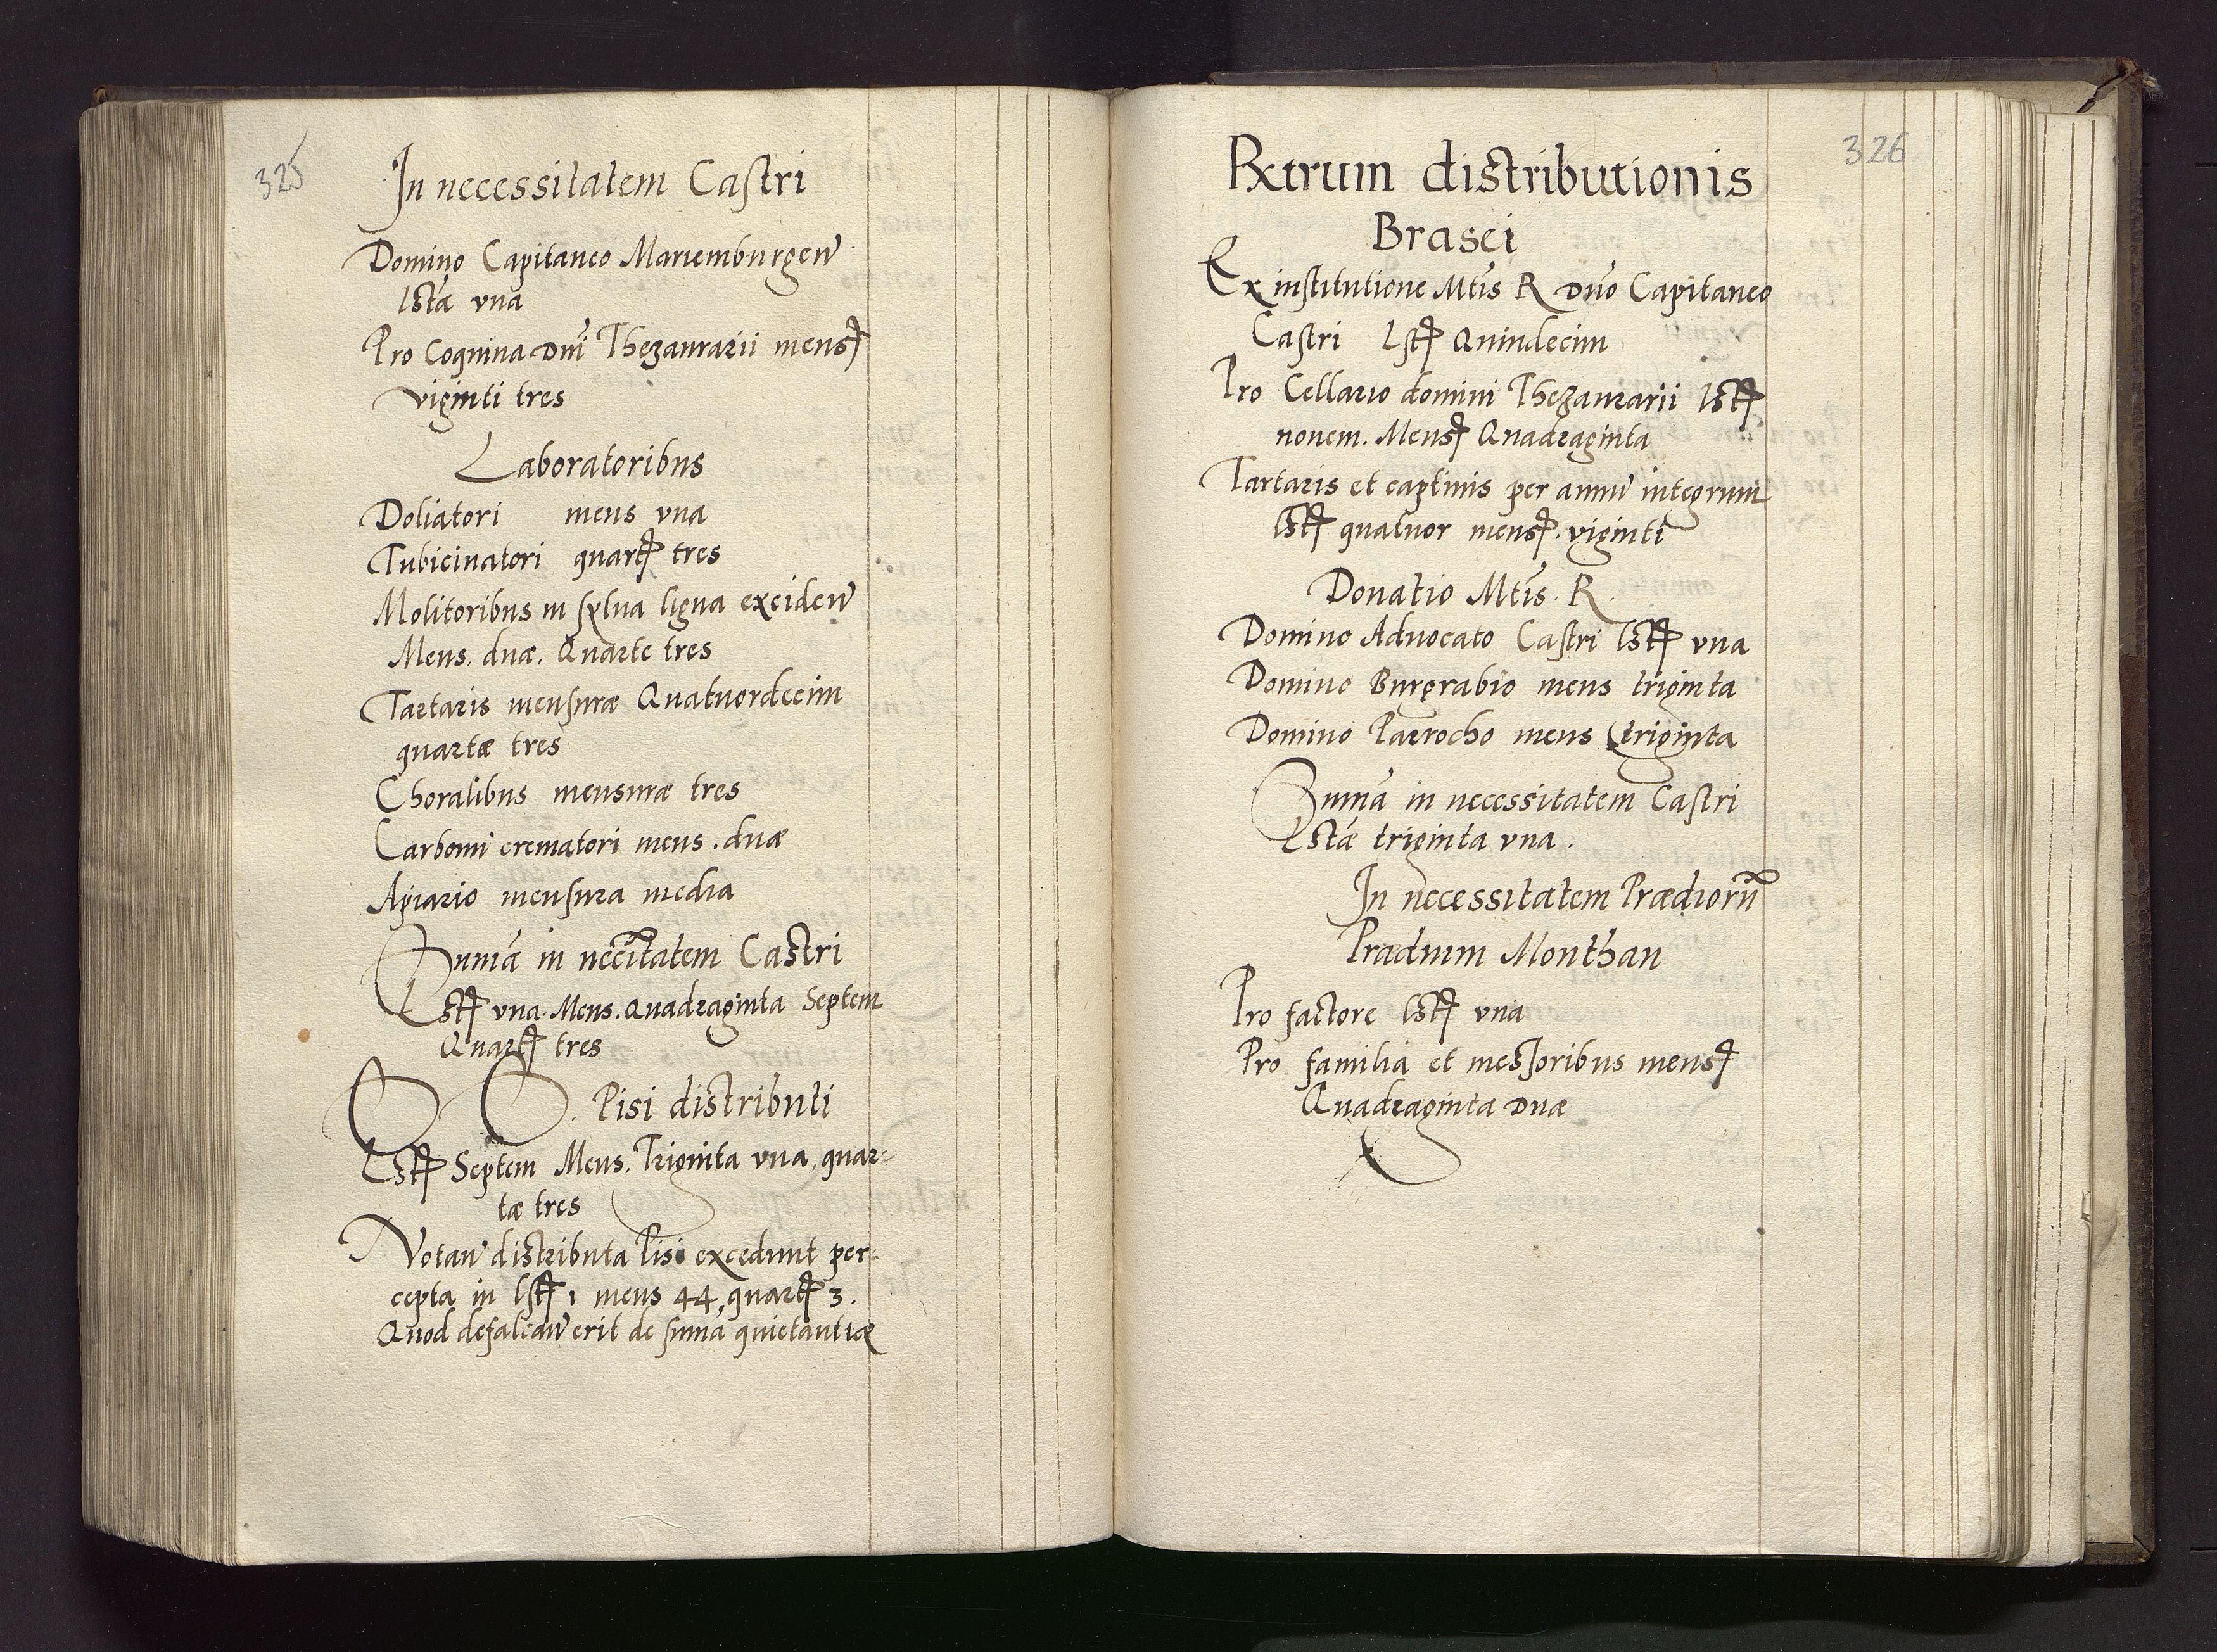 325
In necessitatem Castri
Domino Capitaneo Mariemburgen
lsta vna
Pro Coquina Dni Thezaurarii mens
viginti tres
Laboratoribus
Doliatori mens vna
Tubicinatori quart tres
Molitoribus in sylua ligna exciden
Mens. duæ. Quarte tres
Tartaris mensuræ Quatuordecim
quartæ tres
Choralibus mensuræ tres
Carboni crematori mens. duæ
Apiario mensura media
Suma in nccitatem Castri
Lst vna. Mens. Quadraginta Septem
Quart tres
Pisi distributi
Lst Septem Mens. Triginta vna, quar-
tæ tres
Notan distributa Pisi excedunt per-
cepta in lst 1 mens 44, quart 3.
Quod defalcan erit de suma quietantiæ
326
Rxtrum distributionis
Brasei
Ex institutione Mtis R Dno Capitaneo
Castri lst Quindecim
Pro Cellario domini Thezaurarii lst
nouem. Mens Quadraginta
Tartaris et captiuis per annu integrum
lst quatuor mens. viginti
Donatio Mtis. R.
Domino Aduocato Castri lst vna
Domino Burgrabio mens triginta
Domino Parrocho mens triginta
Suma in necessitatem Castri
Lsta triginta vna.
In necessitatem Prædioru
Prædium Monthau
Pro factore lst vna
Pro familia et messoribus mens
Quadraginta duæ